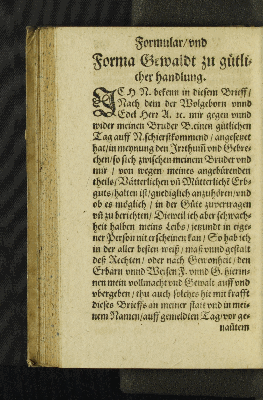 Formular/vnd
Forma Gewaldt zu gütli-
cher handlung.
ICH N. bekenn in diesem Brieff/
Nach dem der Wolgeborn vnnd
Edel Herr A. ꝛc. mir gegen vnnd
wider meinen Bruder B. einen gütlichen
Tag auff N. schierstkommend/angesetzt
hat/in meynung den Irrthum̃ vnd Gebre-
chen/so sich zwischen meinem Bruder vnd
mir/von wegen meines angebürenden
theils/Vätterlichen vñ Mütterliche Erb-
guts/halten ist/gnediglich anzuhören/vnd
ob es möglich/in der Güte zuvertragen
vñ zu berichten/Dieweil ich aber schwach-
heit halben meins Leibs/jetzundt in eige-
ner Person nit erscheinen kan/So hab ich
in der aller besten weiß/maß vnnd gestalt
deß Rechten/oder nach Gewonheit/den
Erbarn vnnd Weisen F. vnnd G. hierin-
nen mein vollmacht vnd Gewalt auff vnd
vbergeben/thu auch solches hie mit krafft
dieses Brieffs an meiner statt vnd in mei-
nem Namen/auff gemeldten Tag/vor ge-
nañtem